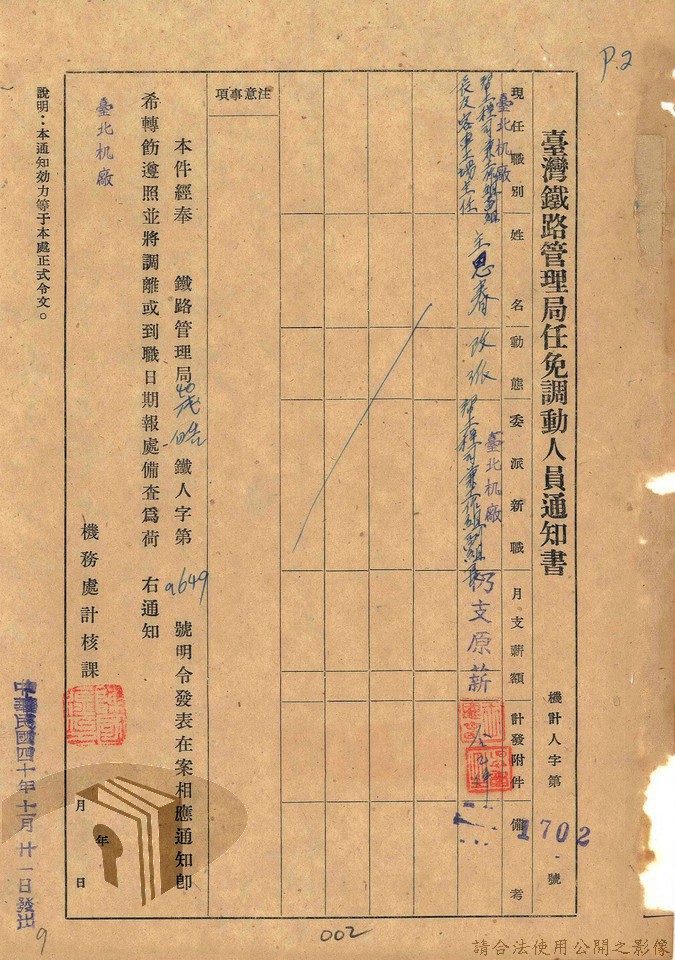 P.2
臺灣鐵路管理局任免調動人員通知書
機計人字第1702號
現任職別
姓名
動態
委派新職
月支薪額
計發附件
備考
臺北机廠
幫工程司兼
長及客車工場主任
王思春
改派
臺北机廠
幫工程司兼
仍支原薪
注意事項
本件經奉 鐵路管理局 鐵人字第9649號明令發表在案相應通知即
希轉飭遵照並將調離或到職日期報處備查爲荷 右通知
臺北机廠
機務處計核課
年
月 日
說明:本通知効力等于本處正式令文。
中華民國四十年十一月廿一日發出
9
002
請合法使用公開之影像